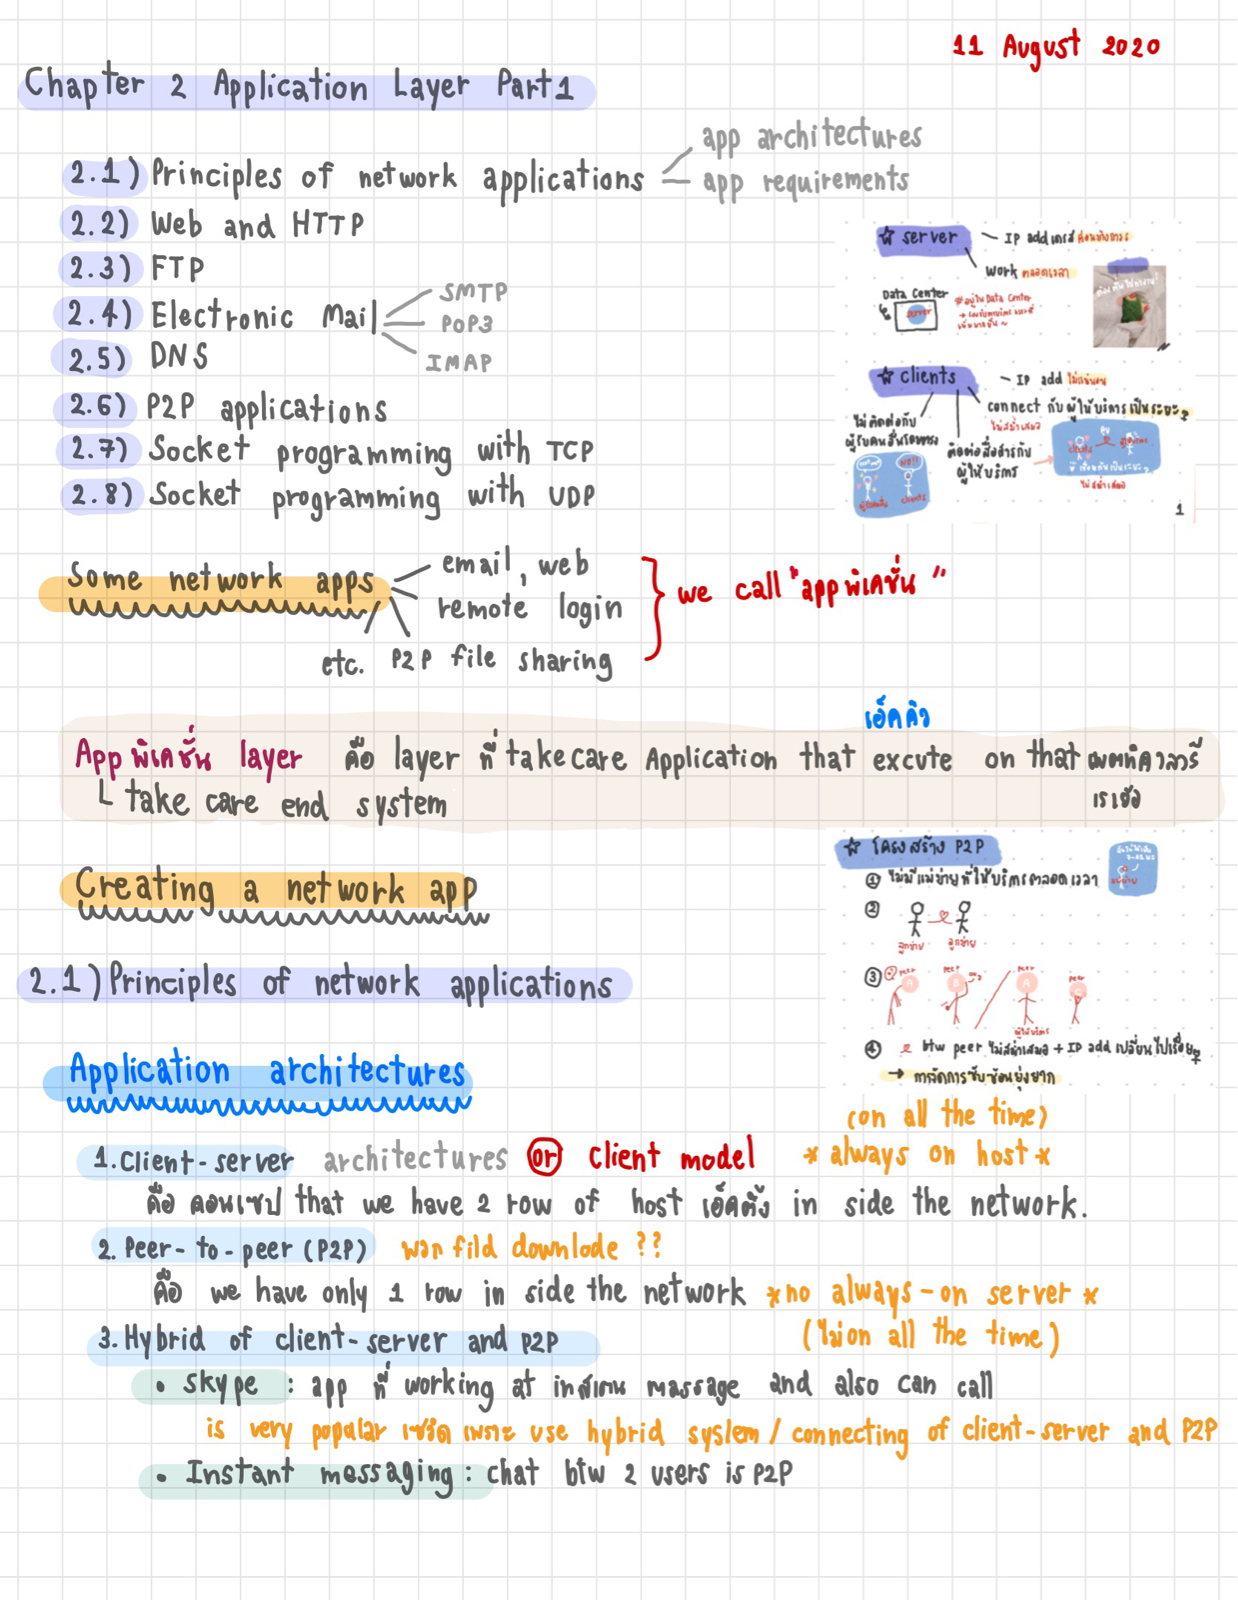 11 August 2020
Chapter 2 Application Layer Part 1
2.1) Principles of network applications
app architectures
app requirements
2.2) Web and HTTP
2.3) FTP
2.4) Electronic Mail
SMTP
POP3
IMAP
2.5) DNS
2.6) P2P applications
2.7) Socket programming with TCP
2.8) Socket programming with UDP
☆ server
IP add
work ตลอดเวลา
Data Center
server
#อยู่ใน Data Center
☆ clients
IP add ไม่แน่นอน
connect กับผู้ให้บริการเป็นระยะๆ
ไม่สม่ำเสมอ
ไม่ติดต่อกับ
ผู้รับคนอื่นโดยตรง
ติดต่อสื่อสารกับ
ผู้ให้บริการ
clients
ไม่สม่ำเสมอ
1
Some network apps
email, web
remote login
P2P file sharing
etc.
we call "appพิเคชั่น"
เอ็คคิว
Appพิเคชั่น layer คือ layer ที่ take care Application that excute on that
เรเยอ
take care end system
Creating a network app
☆ โครงสร้าง P2P
① ไม่มีแม่ข่ายที่ให้บริการตลอดเวลา
②
ลูกข่าย ลูกข่าย
③
peer peer peer peer
A B A C
ผู้ให้บริการ
④ btw peer ไม่สม่ำเสมอ + IP add เปลี่ยนไปเรื่อยๆ
→ การจัดการซับซ้อนยุ่งยาก
2.1) Principles of network applications
Application architectures
(on all the time)
1. Client-server architectures or client model * always on host *
คือ คอนเซป that we have 2 row of host เอ็คตั้ง in side the network.
2. Peer-to-peer (P2P) พวก fild downlode ??
คือ we have only 1 row in side the network *no always-on server *
(ไม่on all the time)
3. Hybrid of client-server and P2P
• Skype : app ที่ working at อินสแตน massage and also can call
is very popular เซอิด เพราะ use hybrid system / connecting of client-server and P2P
• Instant messaging : chat btw 2 users is P2P